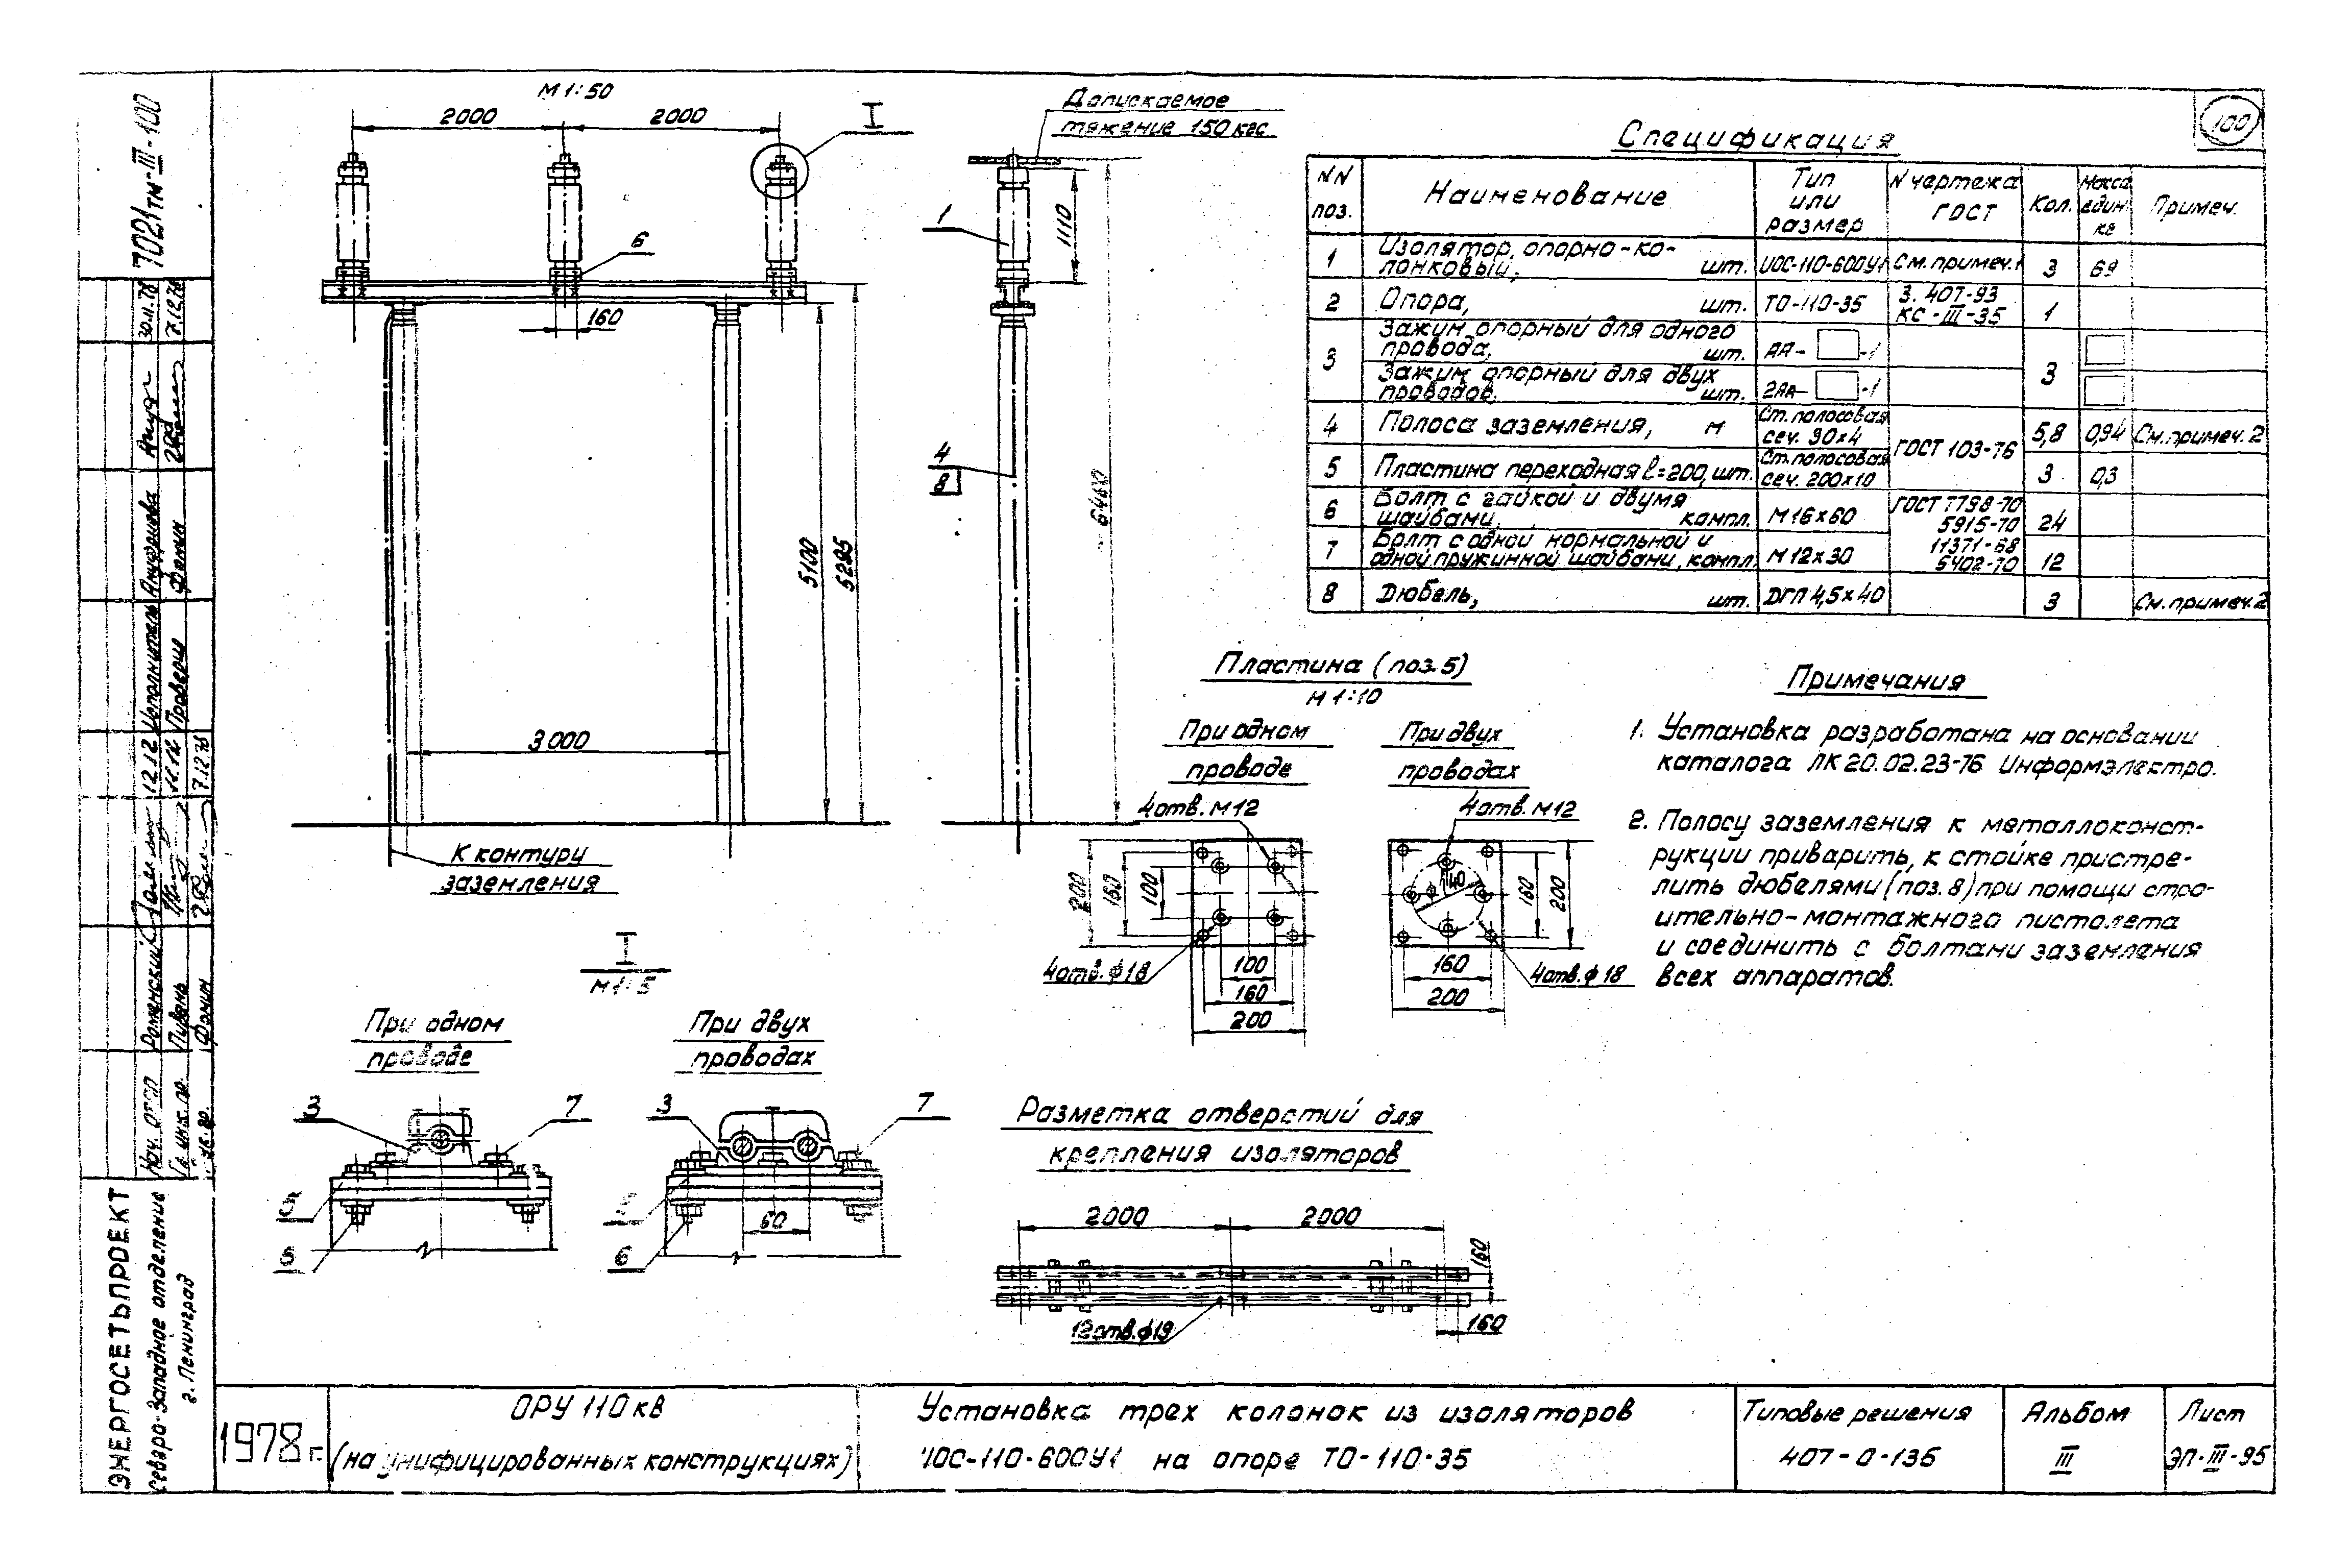 М 1:50
2000
2000
I
6
160
5100
5285
3000
К контуру
заземления
Допускаемое
тяжение 150 кгс
1
1110
4
8
Спецификация
100
NN
поз.
Наименование
Тип
или
размер
N чертежа
ГОСТ
Кол.
Масса
един.
кг
Примеч.
1
Изолятор, опорно-ко-
лонковый, шт.
ИОС-110-600У1
См. примеч. 1
3
69
2
Опора, шт.
ТО-110-35
3.407-93
КС-III-35
1
3
Зажим опорный для одного
провода, шт.
АА- -1
Зажим опорный для двух
проводов, шт.
2АА- -1
3
4
Полоса заземления, м
Ст. полосовая
сеч. 30×4
ГОСТ 103-76
5,8
0,94
См. примеч. 2
5
Пластина переходная ℓ=200, шт.
Ст. полосовая
сеч. 200×10
3
0,3
6
Болт с гайкой и двумя
шайбами, компл.
М16×60
ГОСТ 7798-70
5915-70
11371-68
6402-70
24
7
Болт с одной нормальной и
одной пружинной шайбами, компл.
М12×30
12
8
Дюбель, шт.
ДГП 4,5×40
3
См. примеч. 2
Пластина (поз. 5)
М 1:10
При одном
проводе
4 отв. М12
200
160
100
4 отв. ф18
100
160
200
При двух
проводах
4 отв. М12
160
200
4 отв. ф 18
160
200
Примечания
1. Установка разработана на основании
каталога ЛК 20.02.23-76 Информэлектро.
2. Полосу заземления к металлоконст-
рукции приварить, к стойке пристре-
лить дюбелями (поз. 8) при помощи стро-
ительно-монтажного пистолета
и соединить с болтами заземления
всех аппаратов.
I
М 1:5
При одном
проводе
3
7
При двух
проводах
3
7
6
60
Разметка отверстий для
крепления изоляторов
2000
2000
160
12 отв. ф19
160
1978 г.
ОРУ 110 кВ
(на унифицированных конструкциях)
Установка трех колонок из изоляторов
ИОС-110-600У1 на опоре ТО-110-35
Типовые решения
407-0-136
Альбом
III
Лист
ЭП-III-95
7021тм-III-100
30.11.78
7.12.78
Исполнитель
Ануфриева
Проверил
Фомин
12.12
12.12
7.12.78
Роменский
Фомин
ЭНЕРГОСЕТЬПРОЕКТ
Северо-Западное отделение
г. Ленинград